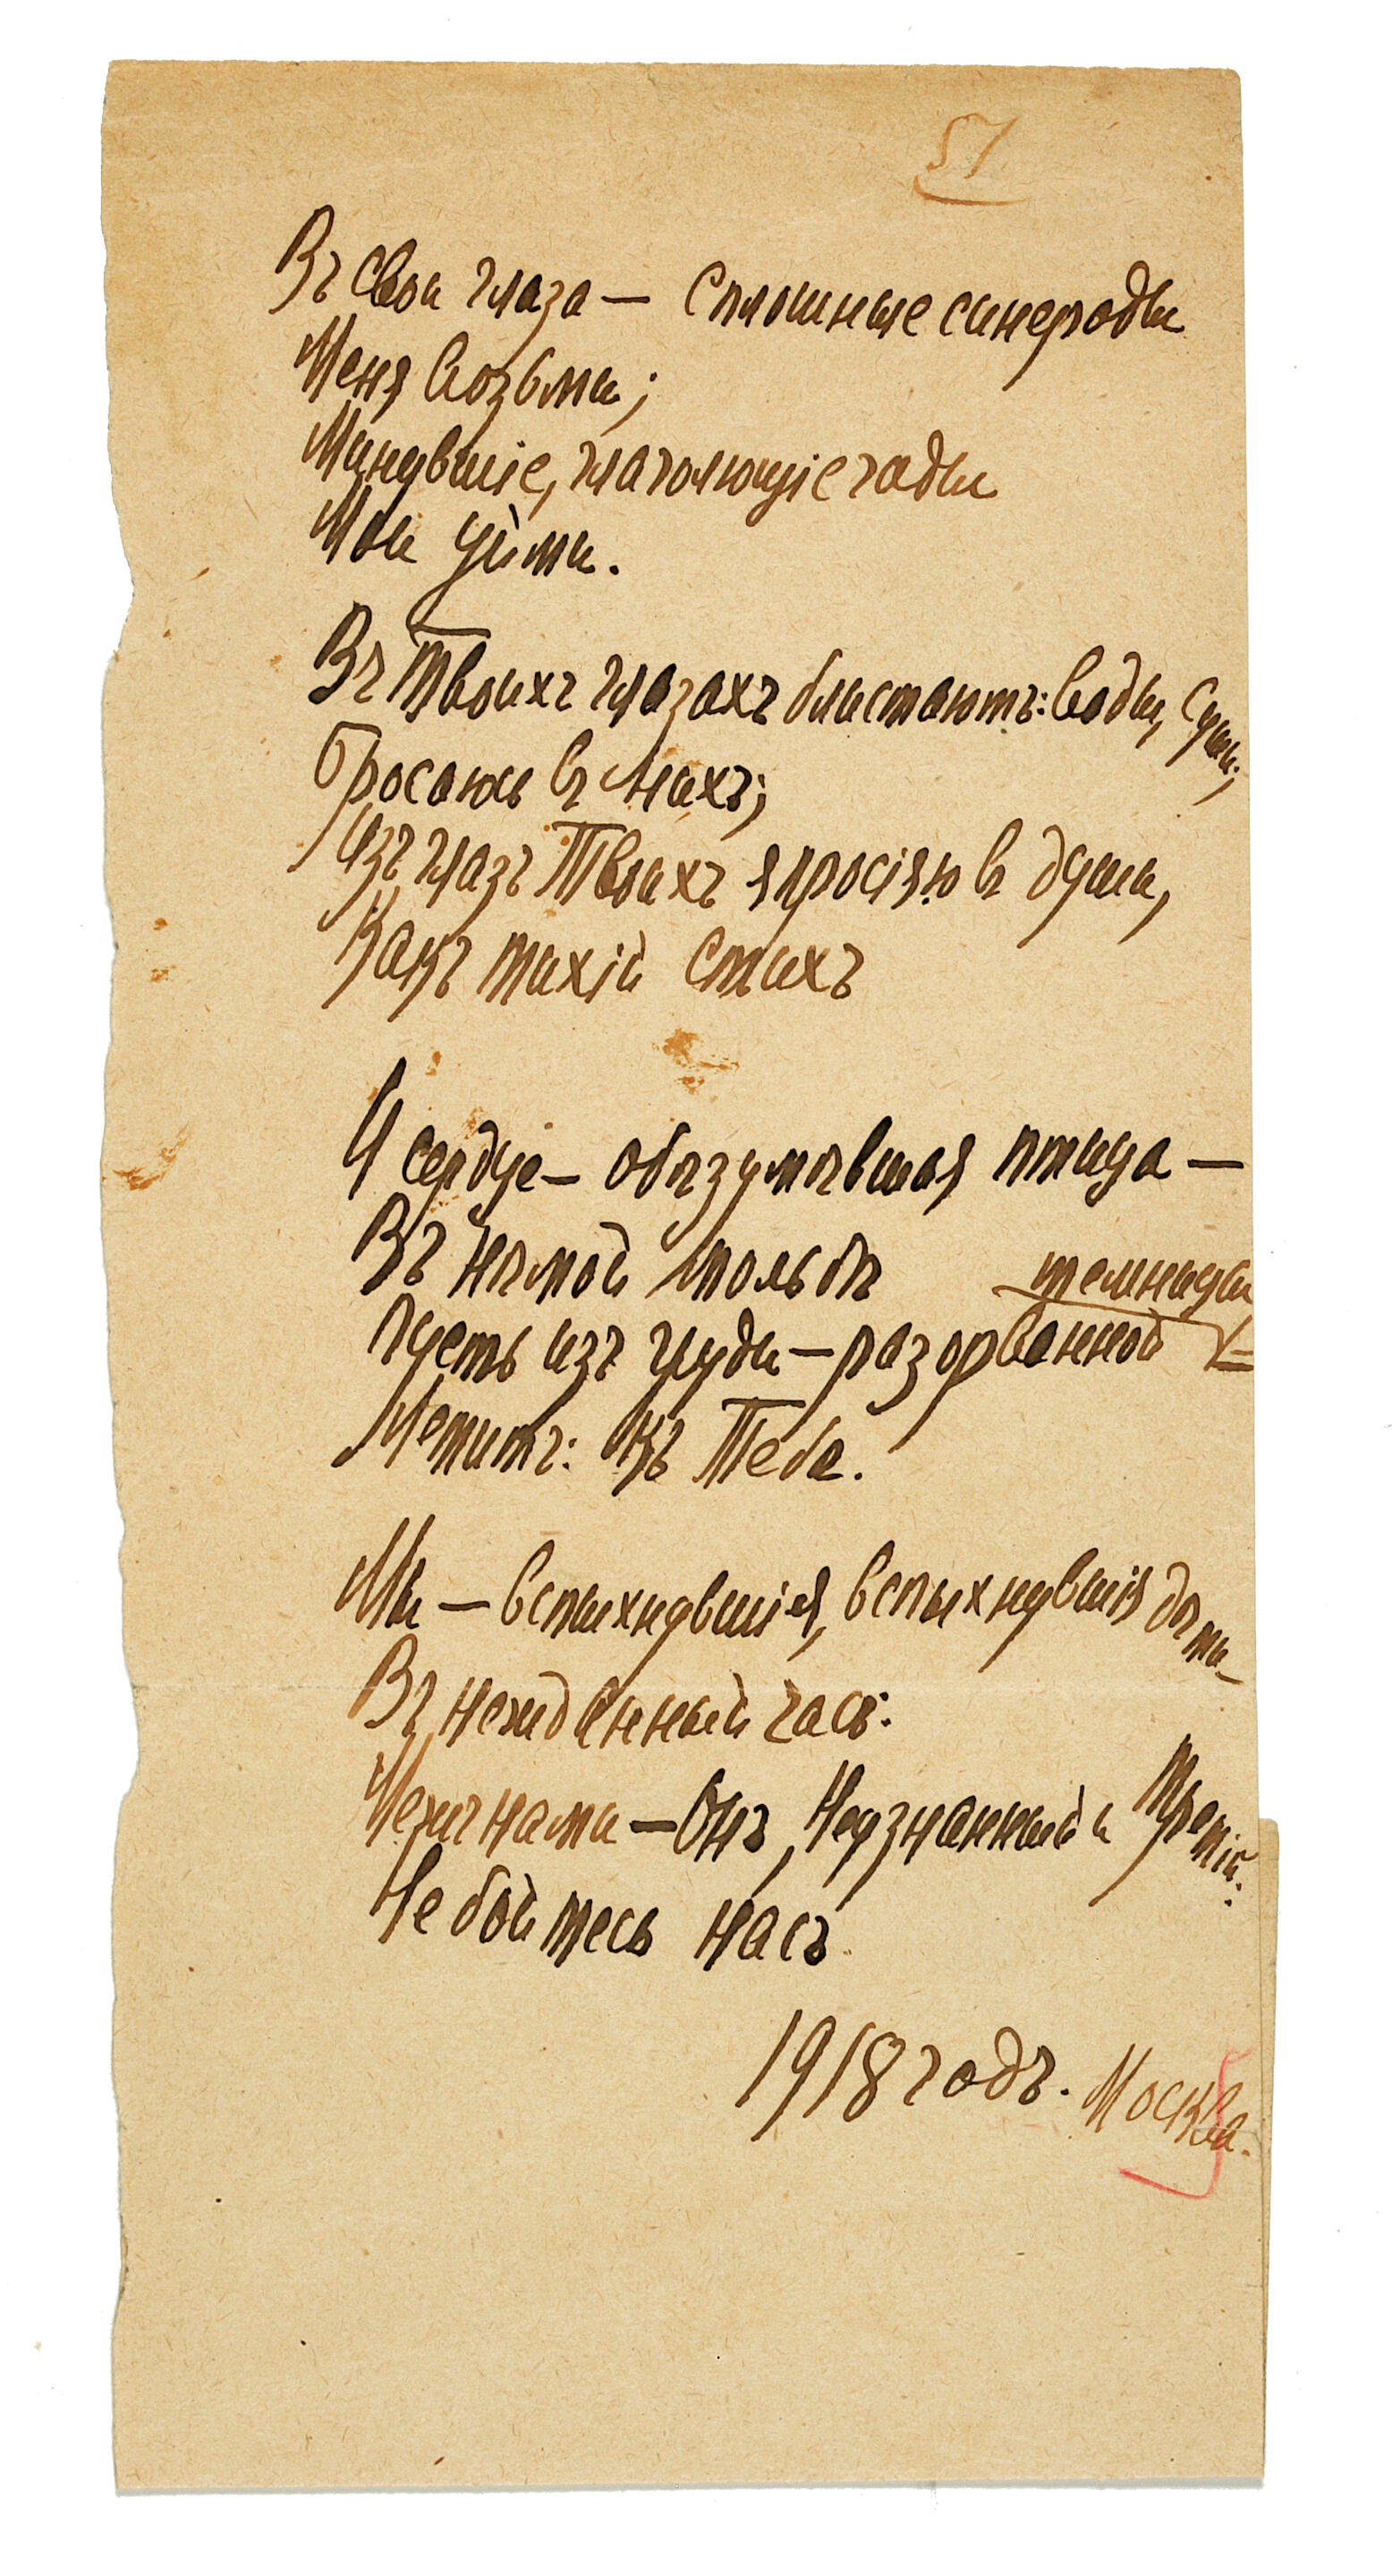 51
Въ свои глаза — сплошные синероды
Меня возьми;
Минувшіе, глаголющіе годы
Мои уйми.
Въ Твоихъ глазахъ блистаютъ: воды, суши;
Бросаюсь въ нихъ;
Изъ глазъ Твоихъ я просіяю въ души,
Какъ тихій стихъ
И сердце — обѣзумѣвшая птица —
Въ нѣмой мольбѣ
темницы
Пусть изъ груди — разорванной
Летитъ: къ Тебѣ.
Мы — вспыхнувшія, вспыхнувшія дѣти —
Въ нежданный часъ:
Межъ нами — Онъ, Неузнанный и Третій:
Не бойтесь насъ.
1918 годъ. Москва.